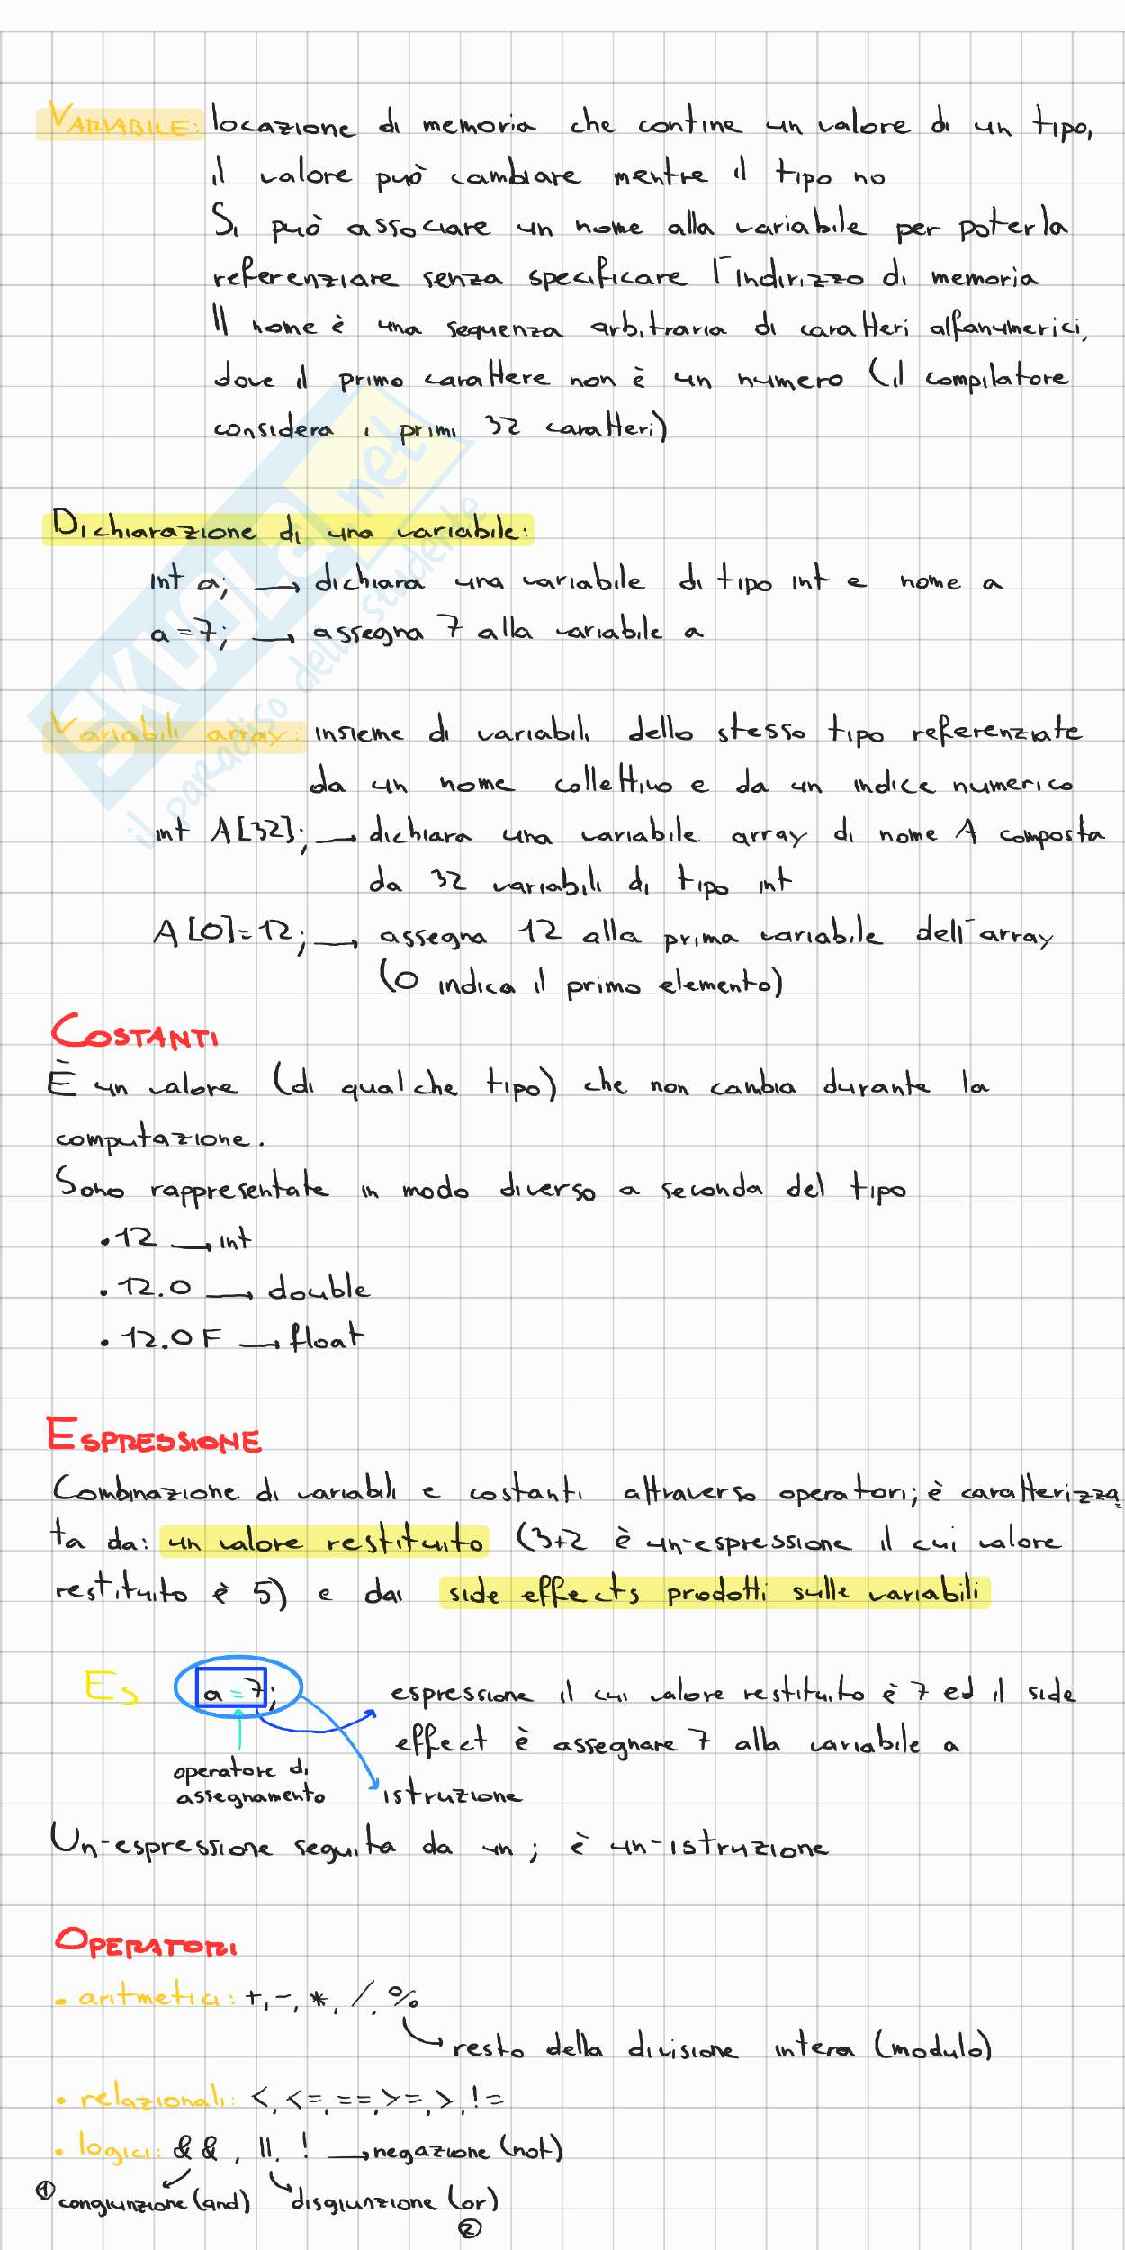 VARIABILE: locazione di memoria che contine un valore di un tipo,
il valore può cambiare mentre il tipo no
Si può associare un nome alla variabile per poterla
referenziare senza specificare l'indirizzo di memoria
Il nome è una sequenza arbitraria di caratteri alfanumerici,
dove il primo carattere non è un numero (il compilatore
considera i primi 32 caratteri)
Dichiarazione di una variabile:
int a; → dichiara una variabile di tipo int e nome a
a=7; → assegna 7 alla variabile a
Variabili array: insieme di variabili dello stesso tipo referenziate
da un nome collettivo e da un indice numerico
int A[32]; → dichiara una variabile array di nome A composta
da 32 variabili di tipo int
A[0]=12; → assegna 12 alla prima variabile dell'array
(0 indica il primo elemento)
COSTANTI
È un valore (di qualche tipo) che non cambia durante la
computazione.
Sono rappresentate in modo diverso a seconda del tipo
• 12 → int
• 12.0 → double
• 12.0F → float
ESPRESSIONE
Combinazione di variabili e costanti attraverso operatori; è caratterizza
ta da: un valore restituito (3+2 è un'espressione il cui valore
restituito è 5) e dai side effects prodotti sulle variabili
Es a=7; espressione il cui valore restituito è 7 ed il side
effect è assegnare 7 alla variabile a
operatore di
assegnamento istruzione
Un'espressione seguita da un ; è un'istruzione
OPERATORI
• aritmetici: +, -, *, /, %
resto della divisione intera (modulo)
• relazionali: <, <=, ==, >=, >, !=
• logici: &&, ||, ! → negazione (not)
① congiunzione (and) disgiunzione (or)
②
SKUOLA.net
il paradiso dello studente